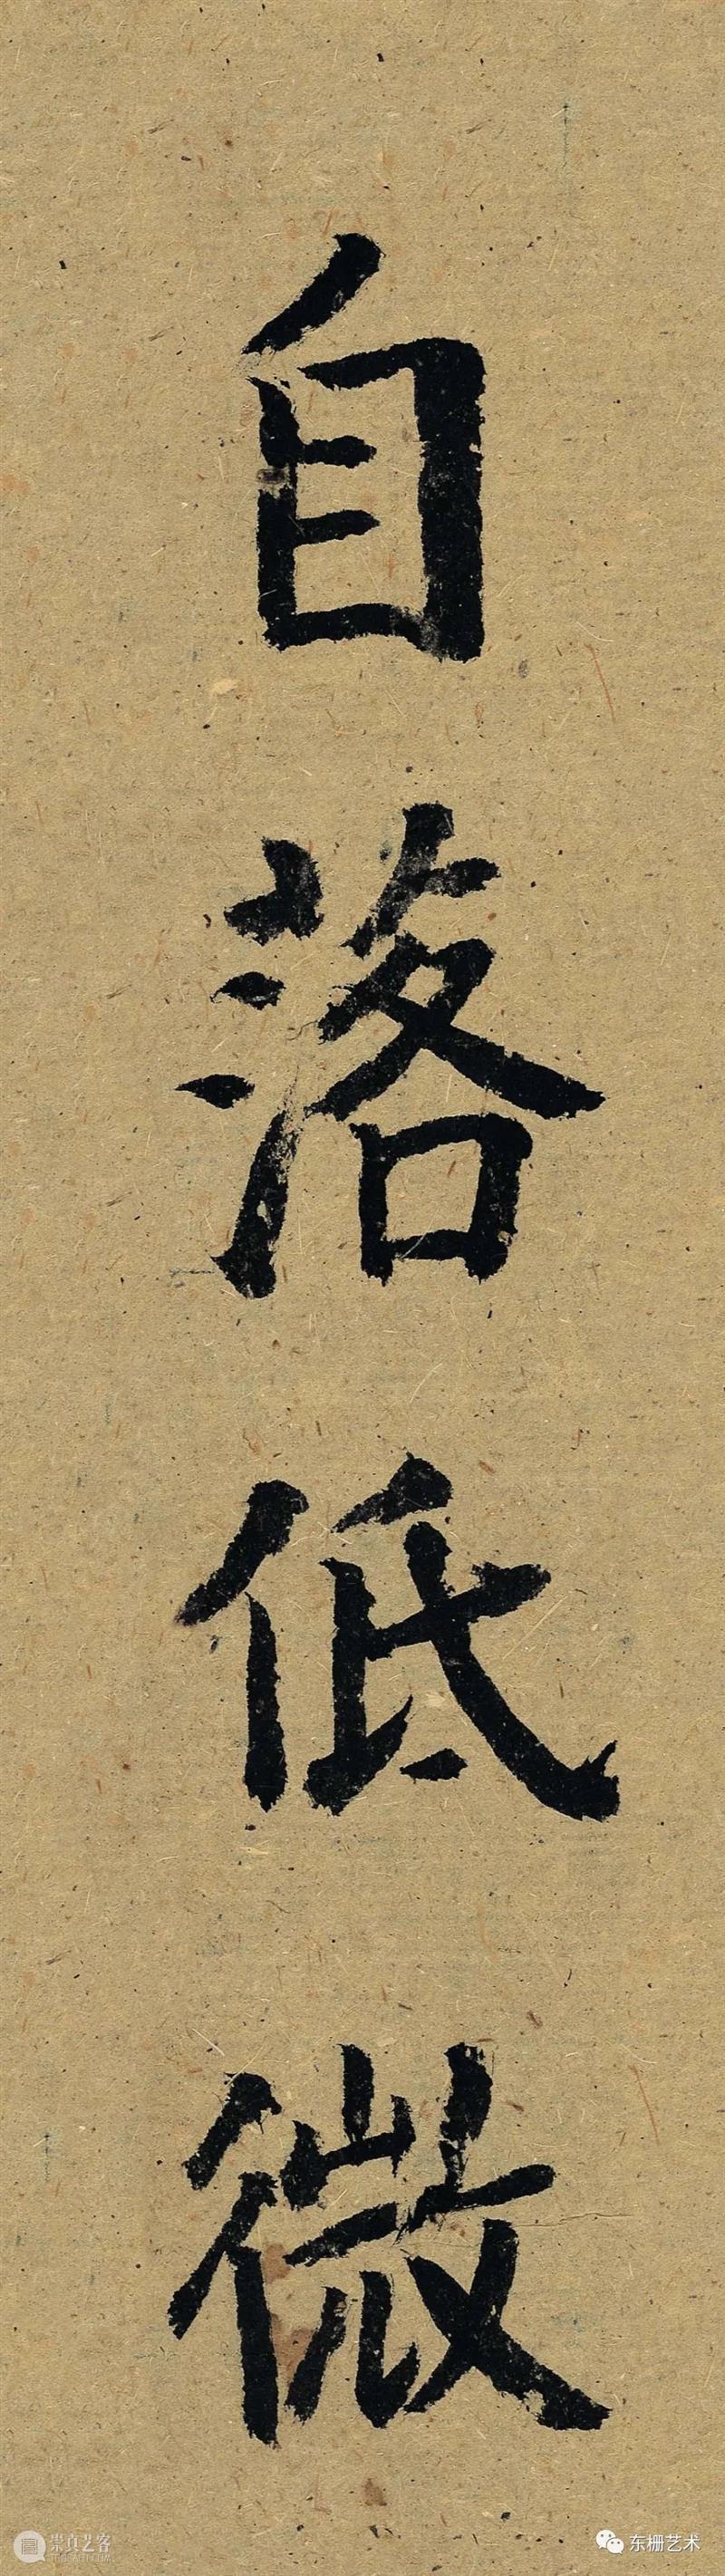 自落低微
崇真艺客
东栅艺术